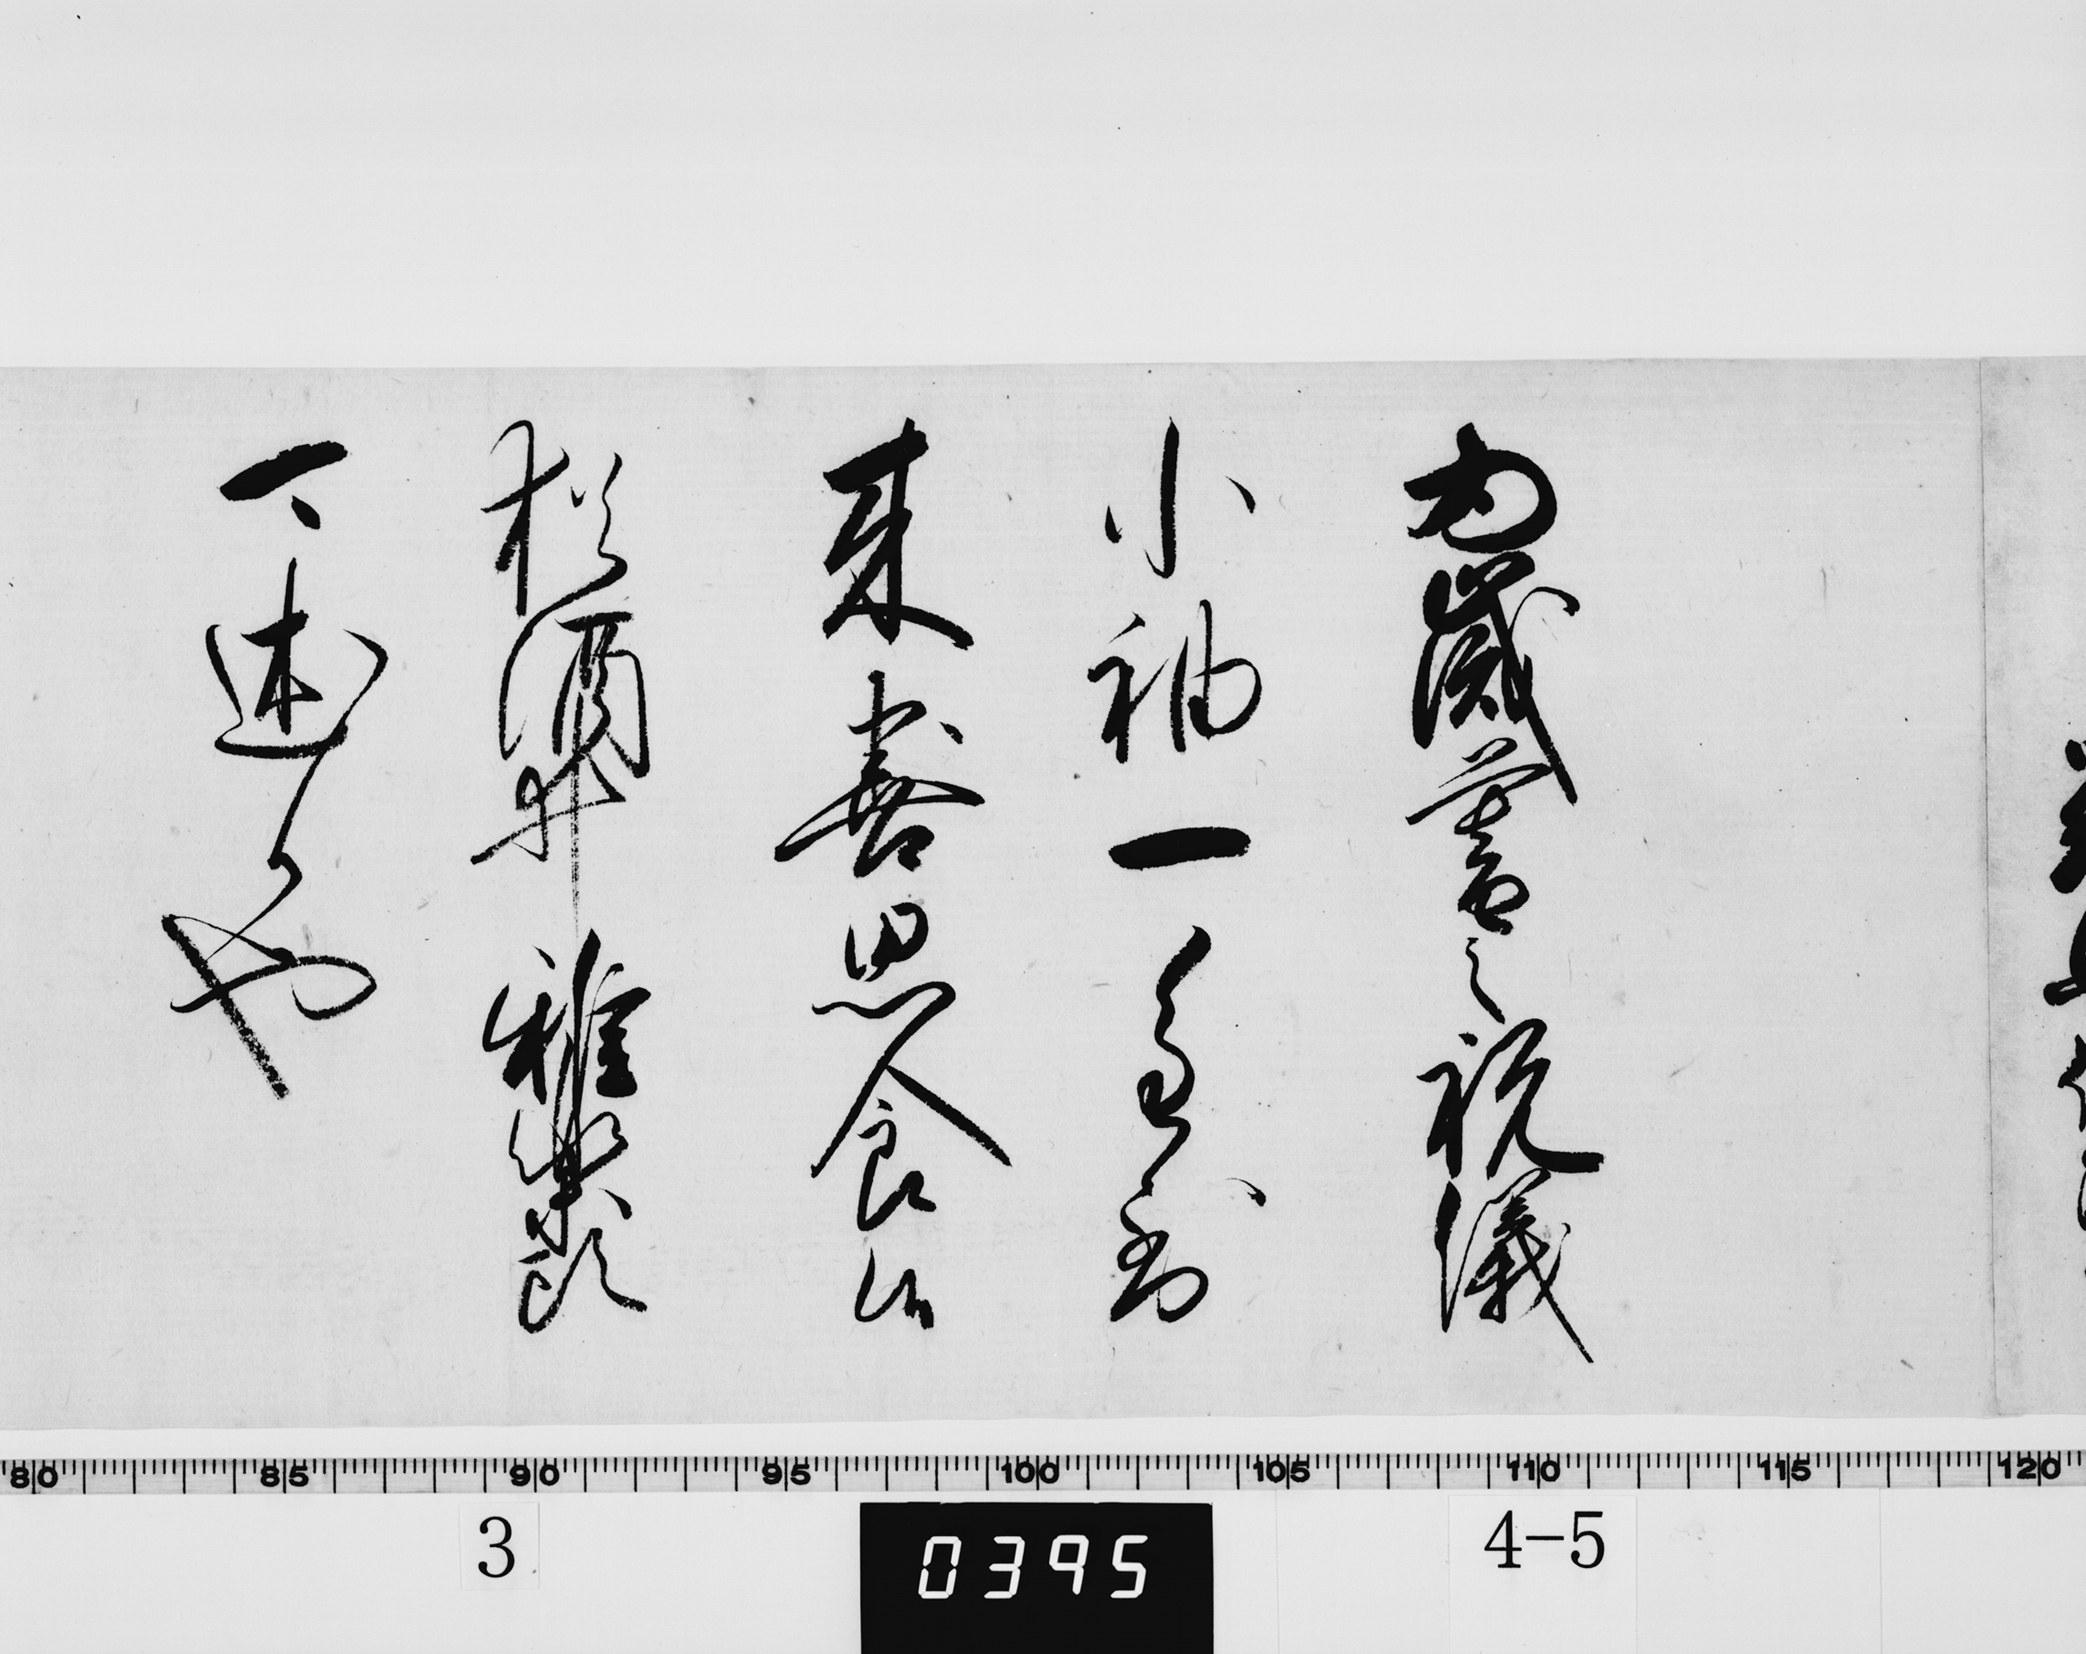 為歳暮之祝儀
小袖一重到
来喜思食候
猶酒井雅楽頭
可述候也
80 85 90 95 100 105 110 115 120
3
0395
4-5